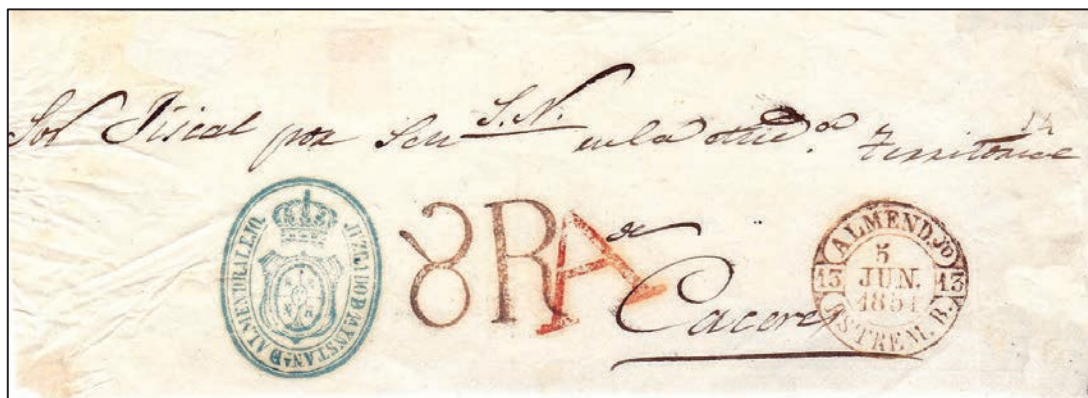 Sor Fiscal por Su S.N. en la Aud.ª Territorial
JUZGADO DE 1ª INSTANª D ALMENDRALEJO.
8 R
A
de
Caceres
ALMEND.JO
5
JUN.
1851
13 13
ESTREM. B.